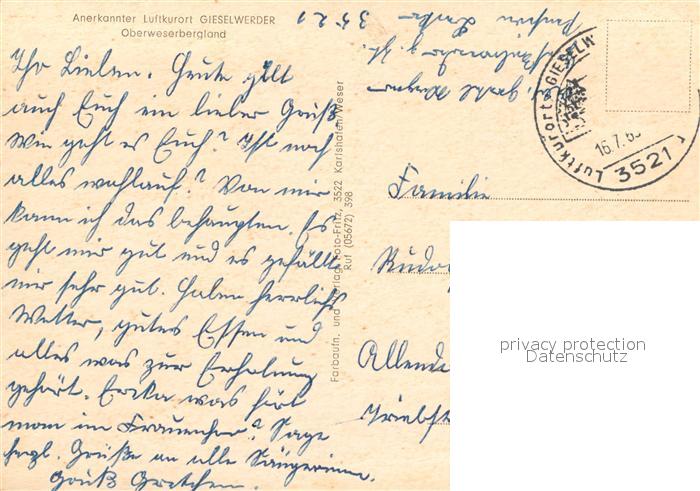 Anerkannter Luftkurort GIESELWERDER
Oberweserbergland
Ihr Lieben. Heute gilt
auch Euch ein lieber Gruß.
Wie geht es Euch? Ist noch
alles wohlauf? Von mir
kann ich das behaupten. Es
geht mir gut und es gefällt
mir sehr gut. Haben herrliches
Wetter, gutes Essen und
alles was zur Erholung
gehört. Erika was hört
man im Frauenchor? Sage
herzl. Grüße an alle Sängerinnen.
Gruß Gretchen.
Farbaufn. und Verlag Foto-Fritz, 3522 Karlshafen/Weser
Ruf (05672) 398
3521
Luftkurort GIESELW
16.7.6
3521
Familie
Rudo
Allende
privacy protection
Datenschutz